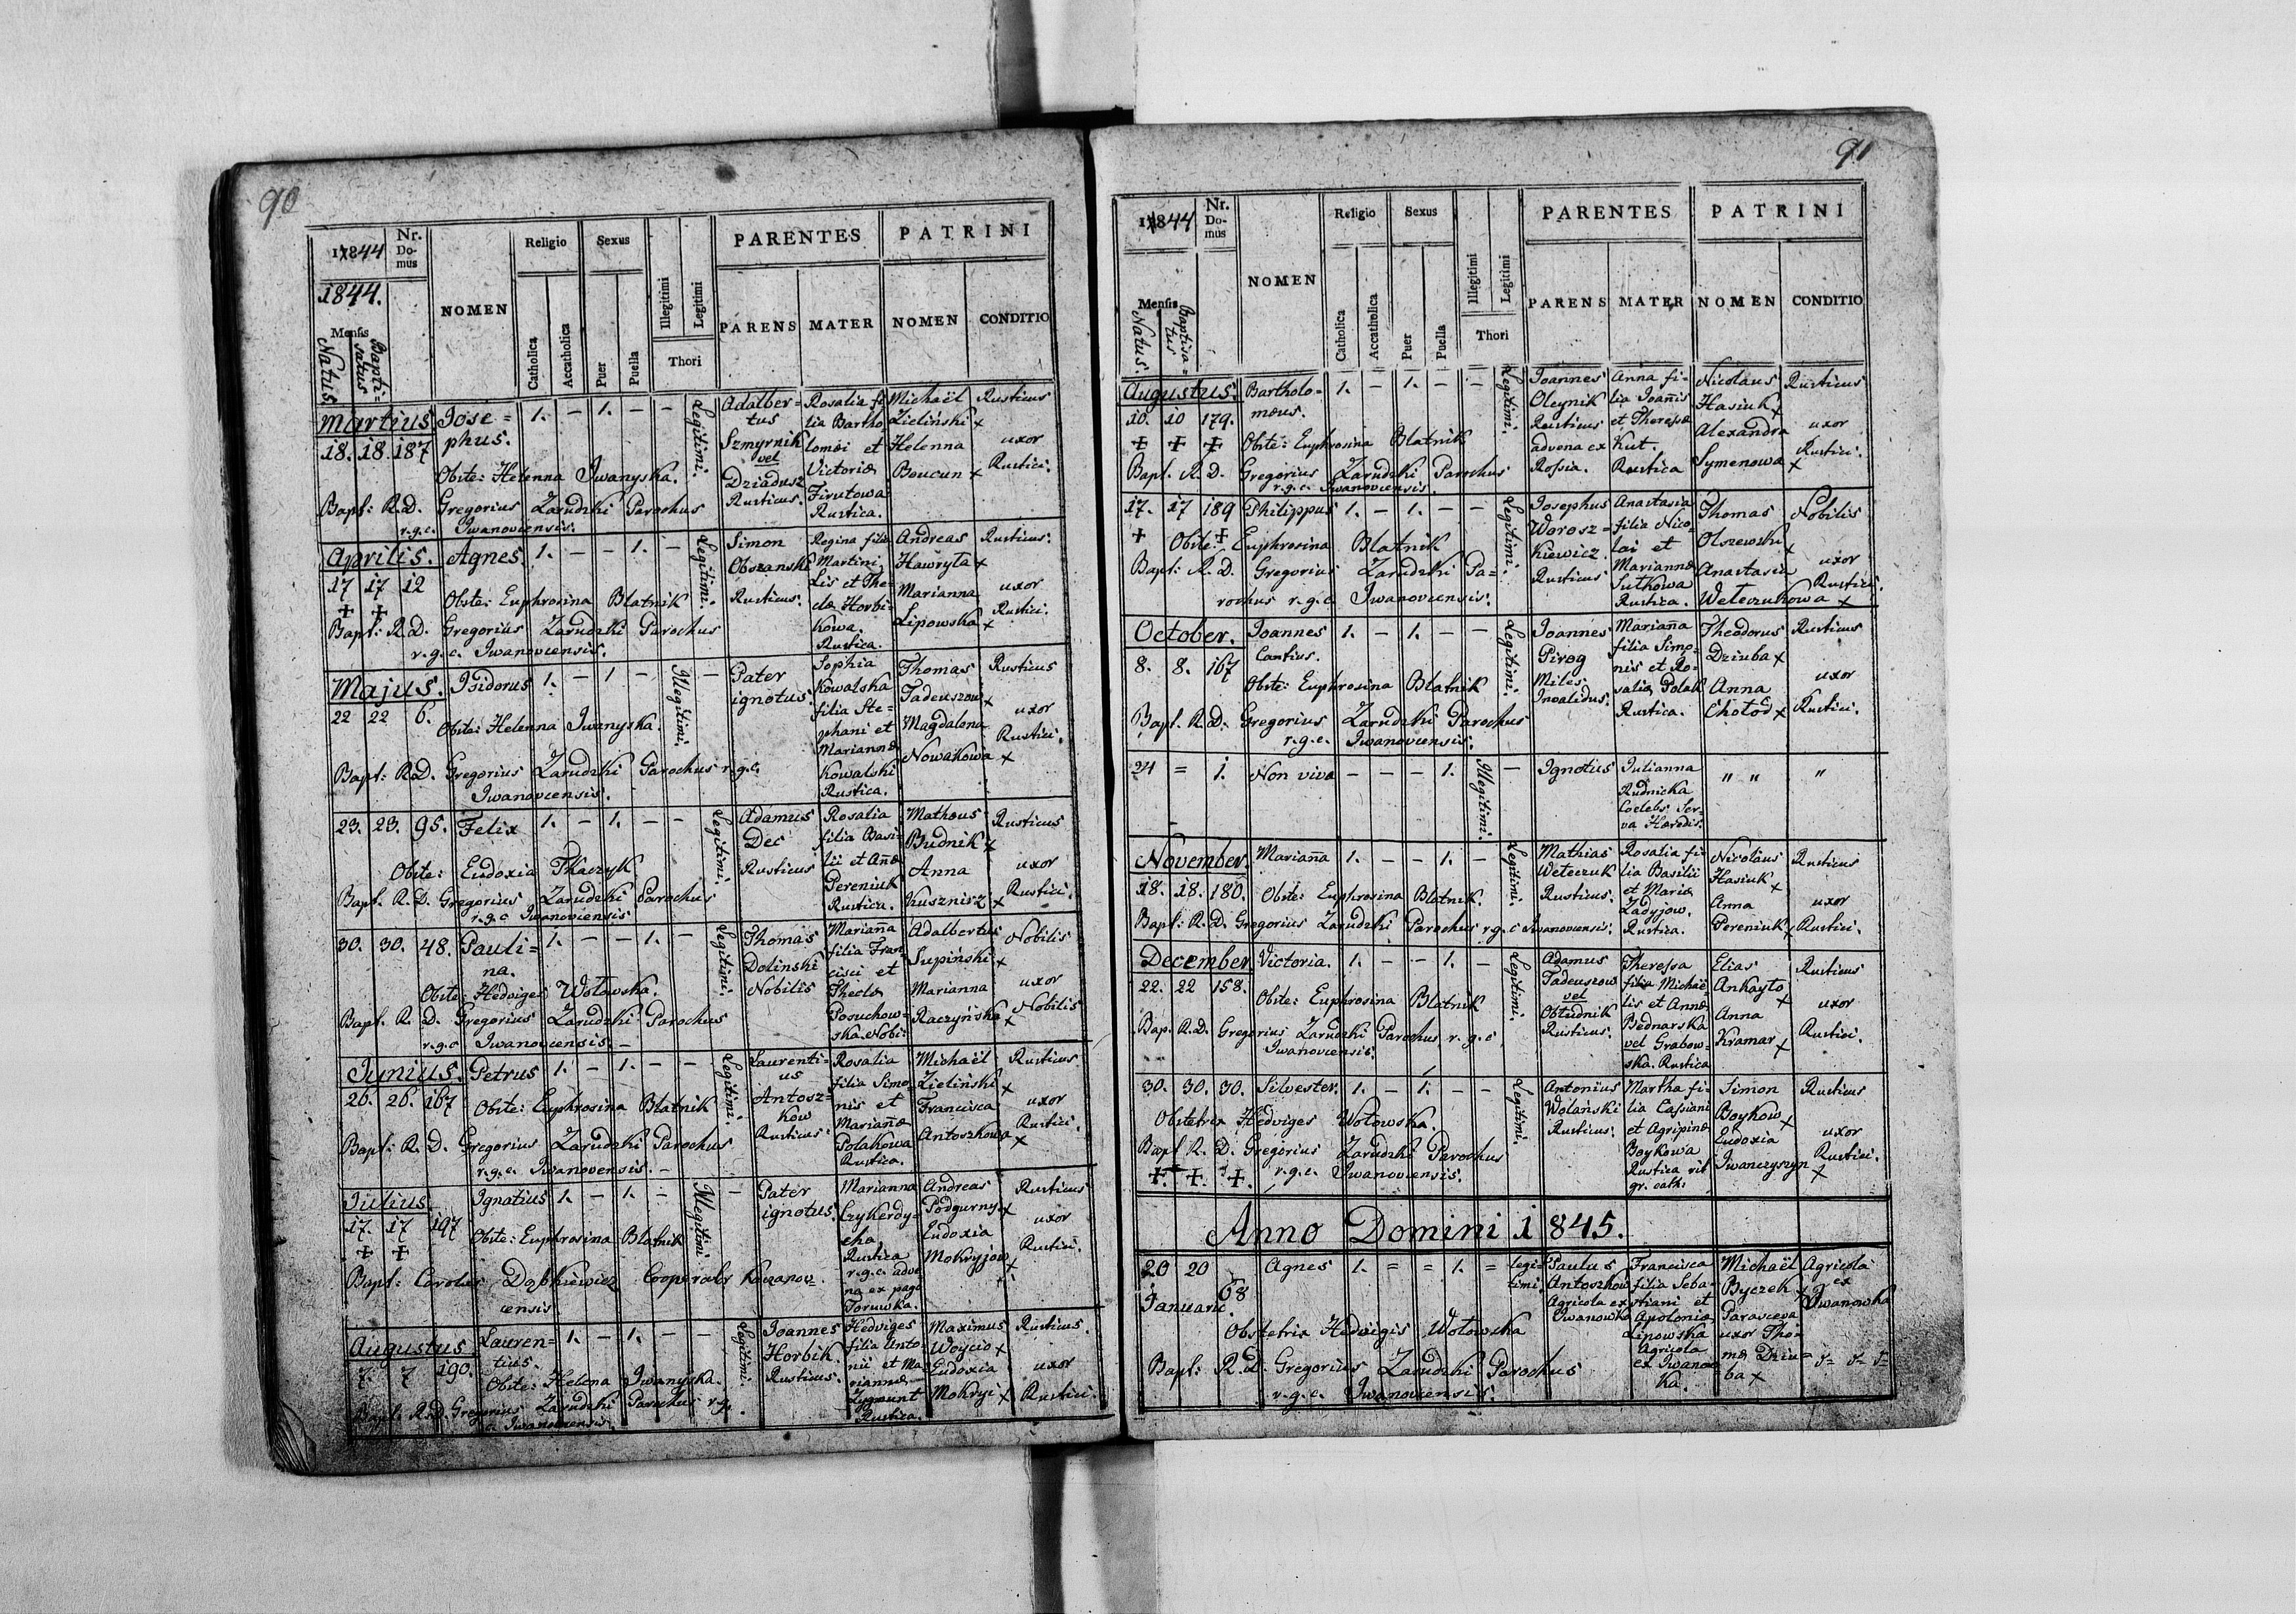 90
1844
Nr. Domus
NOMEN
Religio
Sexus
Illegitimi
Legitimi
PARENTES
PATRINI
1844.
Mensis
Natus
Bapti-
satus
Catholica
Accatholica
Puer
Puella
Thori
PARENS
MATER
NOMEN
CONDITIO
Martius
18. 18. 187
Jose=
phus.
1. – 1. – –
Legitimi.
Obste: Helenna Iwanyska.
Bapt: R.D. Gregorius Zarudzki Parochus
r.g.c. Iwanoviensis.
Adalber=
tus
Szmyrnik
vel
Dziadusz
Rusticus.
Rosalia fi
lia Bartho
lomæi et
Victoriæ
Firutowa
Rustica.
Michaël
Zieliński +
Helenna
Boucun +
Rusticus
uxor
Rustici.
Aprilis.
17 17 12
+ +
Agnes
1. – – 1. –
Legitimi.
Obste: Euphrosina Blatnik
Bapt: R.D. Gregorius Zarudzki Parochus
r.g.c. Iwanoviensis.
Simon
Obszanski
Rusticus.
Regina filia
Martini
Lis et The-
clæ Horbi-
kowa.
Rustica.
Andreas
Hawryta +
Marianna
Lipowska +
Rusticus.
uxor
Rustici.
Majus.
22 22 6.
Isidorus
1. – 1 –
Illegitimi.
–
Obste: Helenna Iwanyska.
Bapt: R.D. Gregorius Zarudzki Parochus r.g.c.
Iwanoviensis.
Pater
ignotus.
Sophia
Kowalska
filia Ste-
phani et
Mariannæ
Kowalski
Rustica.
Thomas
Tadeuszow +
Magdalena
Nowakowa +
Rusticus
uxor
Rustici.
23. 23. 95.
Felix
1. – 1. – –
Legitimi.
Obste: Eudoxia Tkaczyk
Bapt. R.D. Gregorius Zarudzki Parochus
r.g.c Iwanoviensis
Adamus
Dec
Rusticus
Rosalia
filia Basi-
lii et Añæ
Pereniuk
Rustica.
Mathæus
Budnik +
Anna
Kusznirz +
Rusticus
uxor
Rustici.
30. 30. 48.
Pauli=
na.
1. – – 1. –
Legitimi.
Obste: Hedviges Wołowska.
Bapt. R. D. Gregorius Zarudzki Parochus
r.g.c Iwanoviensis. –
Thomas
Dolinski
Nobilis
Mariaña
filia Fran-
cisci et
Theclæ
Posuchow-
ska. Nobi:
Adalbertus
Supiński +
Marianna
Raczyńska +
Nobilis
uxor
Nobilis
Junius.
26. 26. 167
Petrus
1. – 1. – –
Legitimi.
Obste: Euphrosina Blatnik
Bapt: R. D. Gregorius Zarudzki Parochus
r.g.c. Iwanovensis. –
Laurenti-
us
Antosz=
kow
Rusticus.
Rosalia
filia Simo-
nis et
Mariañæ
Polakowa
Rustica.
Michaël
Zieliński +
Francisca
Antoszkowa +
Rusticus
uxor
Rustici.
Julius
17. 17 197
+ +
Ignatius
1. – 1. –
Illegitimi.
–
Obste: Euphrosina Blatnik
Bapt: Carolus Cooperator Kaczanov=
ensis
Pater
ignotus.
Marianna
Czykerdy=
cha
Rustica
r.g.c. adve
na ex pago
Toruwka.
Andreas
Podgurny +
Eudoxia
Mokryjow +
Rusticus
uxor
Rustici.
Augustus
7. 7 190.
Lauren=
tius.
1. – 1. – –
Legitimi.
Obste: Helena Iwanyska.
Bapt: R.D. Gregorius Zarudzki Parochus r.g.
c. Iwanoviensis.
Joannes
Horbik.
Rusticus.
Hedviges
filia Anto-
nii et Ma-
riannæ
Zygmunt
Rustica.
Maximus
Woycio +
Eudoxia
Mokryi +
Rusticus.
uxor
Rustici.
91
1844
Nr. Domus
NOMEN
Religio
Sexus
Illegitimi
Legitimi
PARENTES
PATRINI
Mensis
Natus.
Baptisa=
tus
Catholica
Accatholica
Puer
Puella
Thori
PARENS
MATER
NOMEN
CONDITIO
Augustus.
10. 10 179.
+ + +
Bartholo-
mæus.
1. – 1. – –
Legitimi.
Obste: Euphrosina Blatnik
Bapt. R.D. Gregorius Zarudzki Parochus
r.g.c. Iwanoviensis.
Joannes
Oleynik
Rusticus
advena ex
Rossia.
Anna fi-
lia Joañis
et Theresæ
Kut.
Rustica
Nicolaus
Hasiuk +
Alexandra
Symenowa +
Rusticus
uxor
Rustici.
17. 17 189
Philippus
1. – 1. – –
Legitimi.
+ Obste: + Euphrosina Blatnik
Bapt: R.D. Gregorius Zarudzki Pa=
rochus r.g.c. Iwanoviensis.
Josephus
Worosz=
kiewicz
Rusticus
Anastasia
filia Nico-
lai et
Mariannæ
Sutkowa
Rustica.
Thomas
Olszewski +
Anastasia
Weleczukowa +
Nobilis
uxor
Rustici.
October.
8. 8. 167
Joannes
Cantius.
1. – 1. – –
Legitimi.
Obste: Euphrosina Blatnik
Bapt. R.D. Gregorius Zarudzki Parochus
r.g.c. Iwanoviensis.
Joannes
Pirog
Miles
Invalidus.
Mariaña
filia Simo-
nis et Ro-
saliæ Polak
Rustica.
Theodorus
Dziuba +
Anna
Chołod +
Rusticus
uxor
Rustici.
24 = 1.
Non viva
– – – 1.
Illegitimi.
–
Ignotus
Julianna
Rudnicka
Coelebs Ser-
va Hæredis.
" "
"
November.
18. 18. 180.
Mariaña
1. – – 1. –
Legitimi.
Obste: Euphrosina Blatnik.
Bapt: R.D. Gregorius Zarudzki Parochus r.g.c Iwanoviensis.
Mathias
Weteczuk
Rusticus.
Rosalia fi-
lia Basilii
et Mariæ
Zadyjow.
Rustica.
Nicolaus
Hasiuk +
Anna
Pereniuk +
Rusticus
uxor
Rustici.
December.
22. 22 158.
Victoria.
1. – – 1. –
Legitimi.
Obste: Euphrosina Blatnik
Bap. R.D. Gregorius Zarudzki Parochus r.g.c
Iwanoviensis.
Adamus
Tadeuszow
vel
Obtudnik
Rusticus.
Theressa
filia Michaë
lis et Annæ
Bednarska
vel Grabow-
ska. Rustica
Elias
Ankayto +
Anna
Kramar +
Rusticus
uxor
Rustici.
30. 30. 30.
Silvester.
1. – 1. – –
Legitimi.
Obstetrix Hedviges Wołowska.
Bapt R. D. Gregorius Zarudzki Parochus
+ + + r.g.c. Iwanoviensis.
Antonius
Wolański
Rusticus.
Martha fi-
lia Cassiani
et Agripinæ
Boykowa
Rustica rit
gr. cath.
Simon
Boykow +
Eudoxia
Iwanczyszyn +
Rusticus
uxor
Rustici.
Anno Domini 1845.
20 20 68
Januarii.
Agnes
1. = = 1. =
legi-
timi.
Obstetrix Hedvigis Wołowska
Bapt: R.d. Gregorius Zarudzki Parochus
r.g.c. Iwanoviensis.
Paulus
Antoszkow
Agricola ex
Iwanowka
Francisca
filia Seba-
stiani et
Apoloniæ
Lipowska
Agricola
ex Iwanow
ka.
Michaël
Byczek +
Parasceva
uxor Tho-
mæ Dziu=
ba +
Agricola
ex
Iwanowka